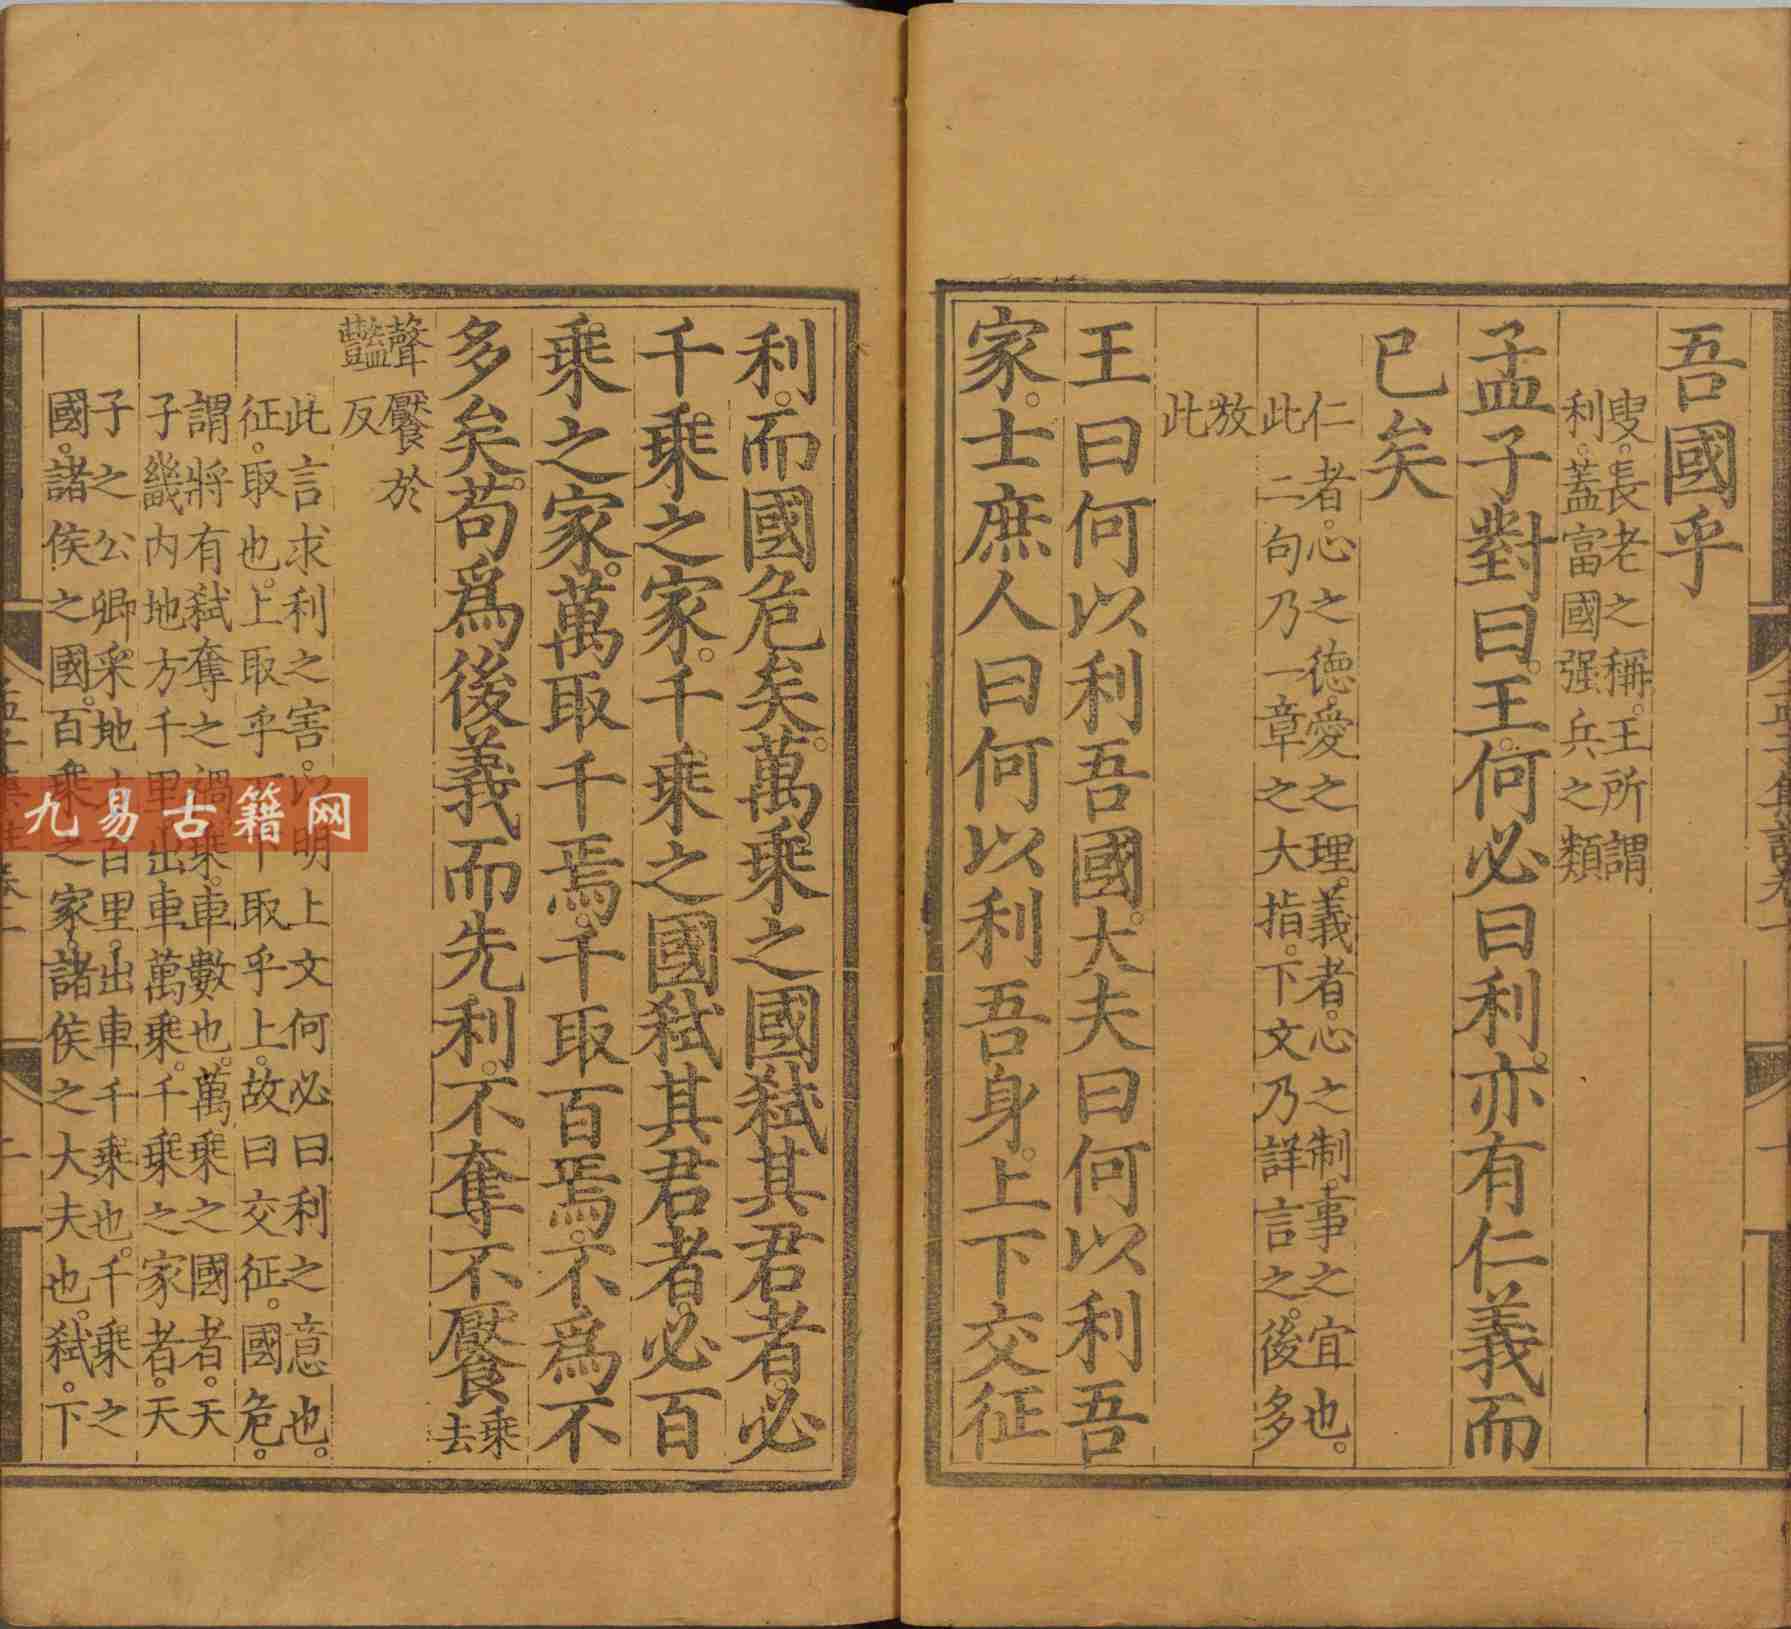 吾國乎
叟。長老之稱。王所謂
利。蓋富國强兵之類
孟子對曰。王。何必曰利。亦有仁義而
已矣
仁者。心之德。愛之理。義者。心之制。事之宜也。
此二句乃一章之大指。下文乃詳言之。後多
放
此
王曰何以利吾國。大夫曰何以利吾
家。士庶人曰何以利吾身。上下交征
利。而國危矣。萬乘之國弒其君者。必
千乘之家。千乘之國弒其君者。必百
乘之家。萬取千焉。千取百焉。不爲不
多矣。苟爲後義而先利。不奪不饜
乘
去
聲饜於
豔反
此言求利之害。以明上文何必曰利之意也。
征。取也。上取乎下取乎上。故曰交征。國危。
謂將有弒奪之禍。乘。車數也。萬乘之國者。天
子畿内地方千里出車萬乘。千乘之家者。天
子之公卿。采地方百里。出車千乘也。千乘之
國。諸侯之國。百乘之家。諸侯之大夫也。弒。下
九易古籍网